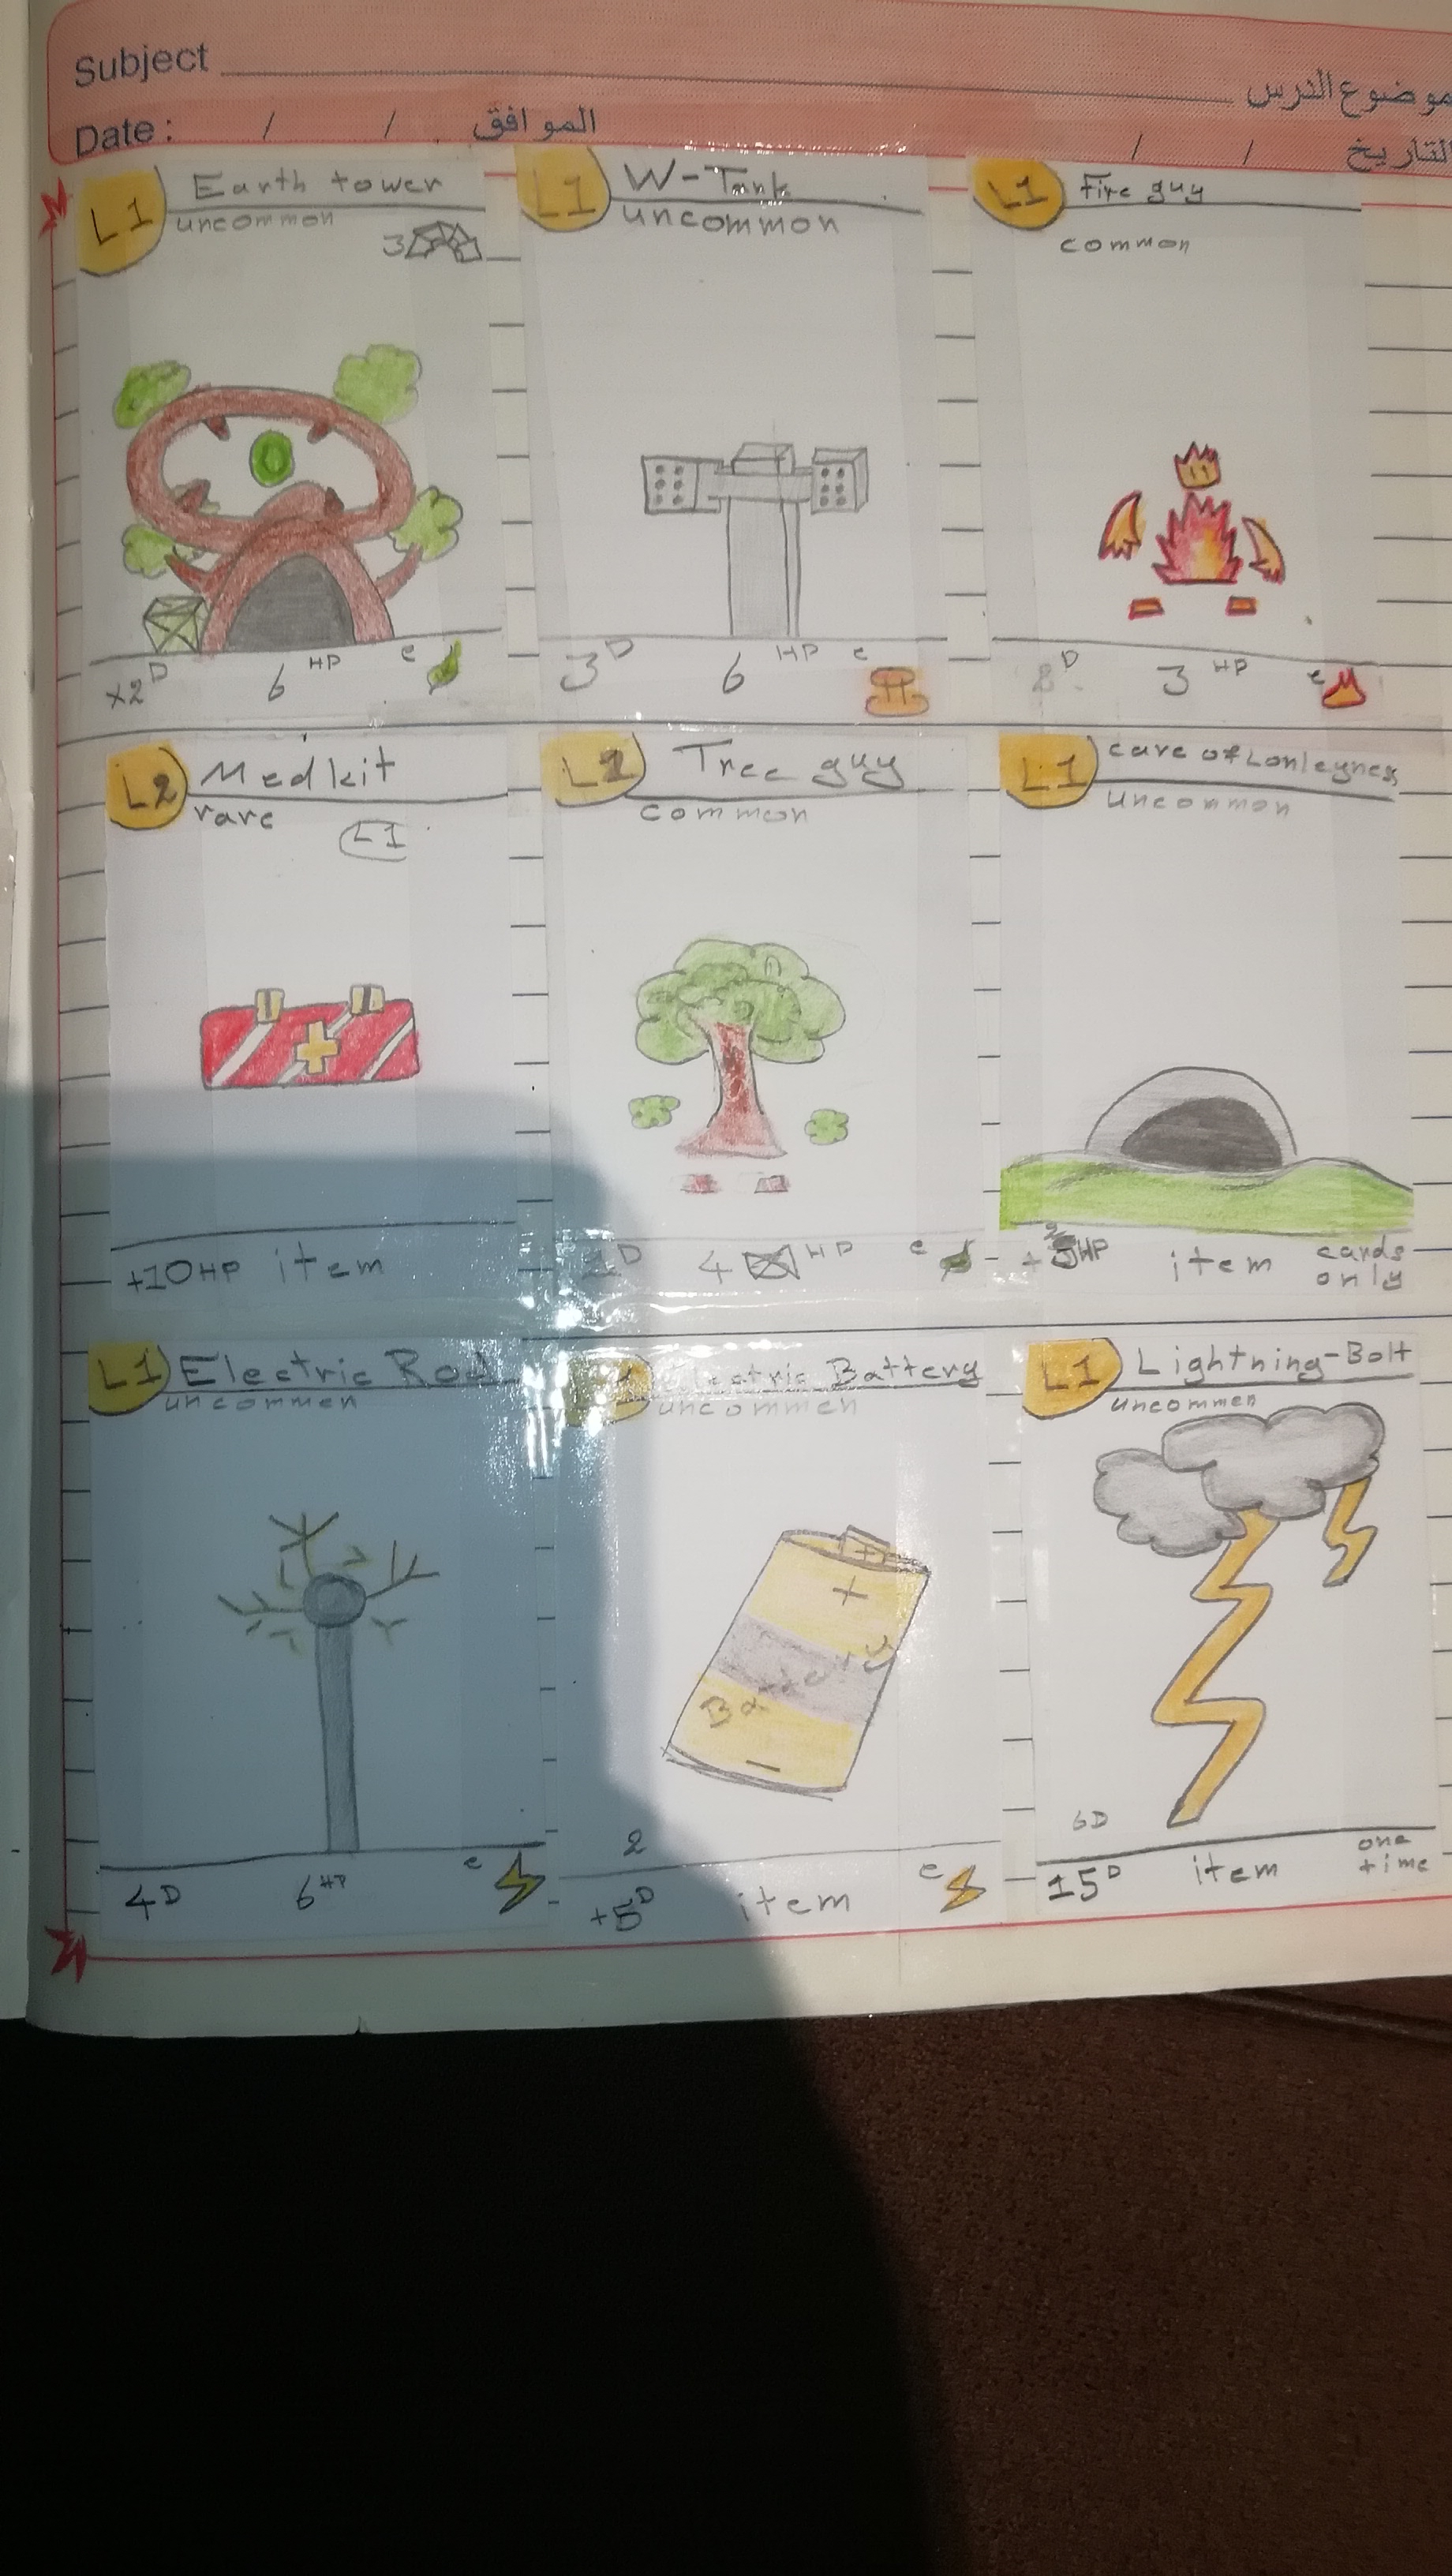 Subject موضوع الدرس
Date : / / الموافق / / التاريخ
L1 Earth tower
uncommon
3
x2D 6 HP e
L1 W-Tank
uncommon
3D 6 HP e
L1 Fire guy
common
3 HP e
L2 Medkit
rare
L1
+10HP item
Tree guy
common
4 HP e
L1 cave of Lonleyness
uncommon
HP item cards
only
L1 Electric Rod
uncommen
4D 6HP e
Electric Battery
uncommen
Battery
+
-
2
+5D item e
L1 Lightning-Bolt
uncommen
6D
15D item one
time